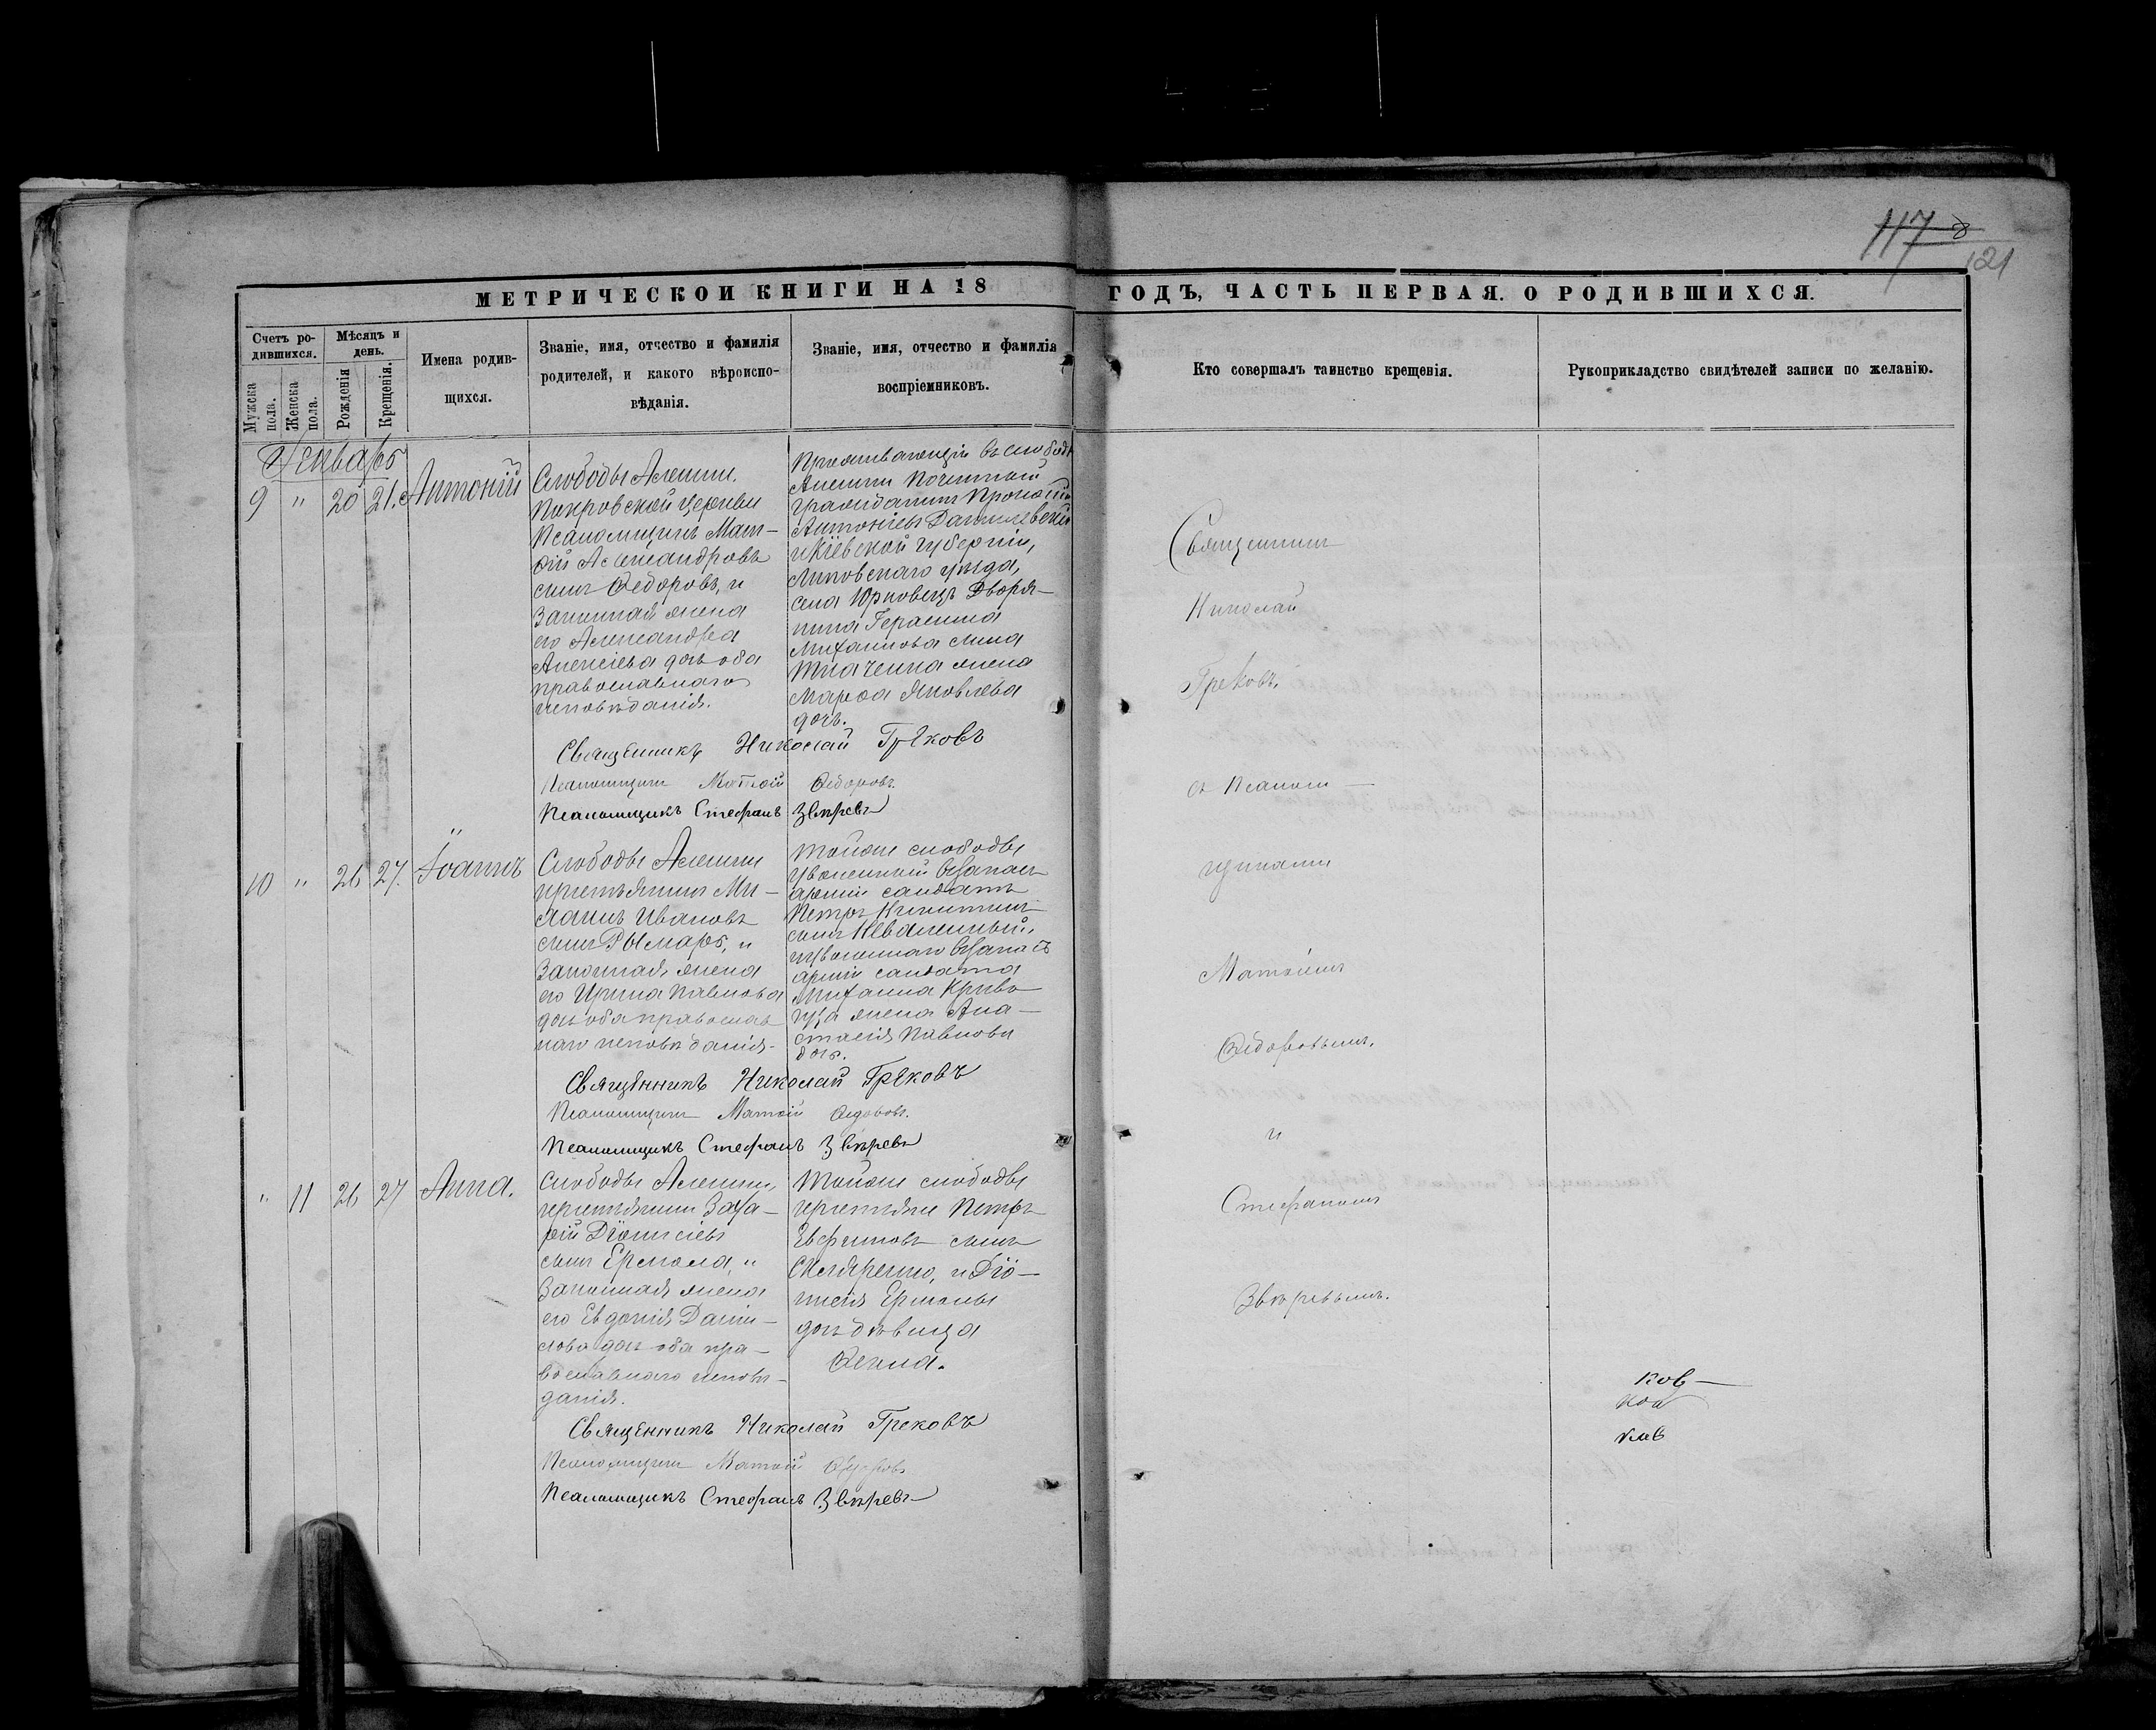 117
121
МЕТРИЧЕСКОИ КНИГИ НА 18
ГОДЪ, ЧАСТЬ ПЕРВАЯ. О РОДИВШИХСЯ.
Счетъ ро-
дившихся.
Мужска
пола.
Женска
пола.
Мѣсяцъ и
день.
Рожденія
Крещенія.
Имена родив-
щихся.
Званіе, имя, отчество и фамилія
родителей, и какого вѣроиспо-
вѣданія.
Званіе, имя, отчество и фамилія
воспріемниковъ.
Кто совершалъ таинство крещенія.
Рукоприкладство свидѣтелей записи по желанію.
Генварь
9 " 20 21. Антоній
Слободы Алешни.
Покровской церкви
Псаломщикъ Мат-
ѳій Александровъ
сынъ Ѳедоровъ, и
законная жена
его Александра
Алексіева дочь оба
православнаго
исповѣданія.
Проживающій въ слободѣ
Алешни Почетный
гражданинъ
Антоніевъ Данилевскій
и Кіевской губерніи,
Липовскаго уѣзда,
села Юрковецъ Дворя-
нина Герасима
Михайлова сына
Ткаченка жена
Марѳа Яковлева
дочь.
Священникъ Николай Грековъ
Псаломщикъ Матѳій Ѳедоровъ.
Псаломщикъ Стефанъ Звѣревъ
10 " 26 27. Іоаннъ
Слободы Алешни
крестьянинъ Ми-
Ивановъ
сынъ Рымарь, и
законная жена
его Ирина Павлова
дочь оба православ
наго исповѣданія.
Тойже слободы
уволенный въ запасъ
арміи солдатъ
Петръ Никитинъ
сынъ
и уволеннаго въ запасъ
арміи солдата
Михаила Криво
жена Ана-
стасія Павлова
дочь.
Священникъ Николай Грековъ
Псаломщикъ Матѳій Ѳедоровъ.
Псаломщикъ Стефанъ Звѣревъ
" 11 26 27 Анна.
Слободы Алешни,
крестьянинъ Заха-
рій Діонисіевъ
сынъ Ермола, и
законная жена
его Евдокія Дани-
лова дочь оба пра-
вославнаго исповѣ-
данія.
Тойже слободы
крестьяне Петръ
Евфимовъ сынъ
Скляренко, и Діо-
нисія Ермолы
дочь дѣвица
Ѳекла.
Священникъ Николай Грековъ
Псаломщикъ Матѳій Ѳедоровъ
Псаломщикъ Стефанъ Звѣревъ
Священникъ
Николай
Грековъ,
съ псалом-
щиками
Матѳіемъ
Ѳедоровымъ,
и
Стефаномъ
Звѣревымъ.